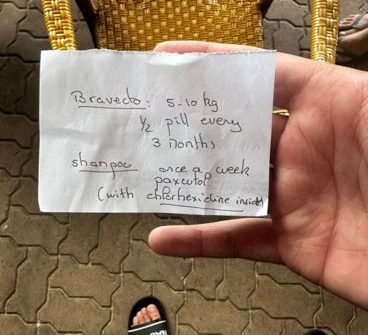 Bravedo: 5-10 kg
1/2 pill every
3 months
shampoo once a week
paxcutol
(with chlorhexidine inside)